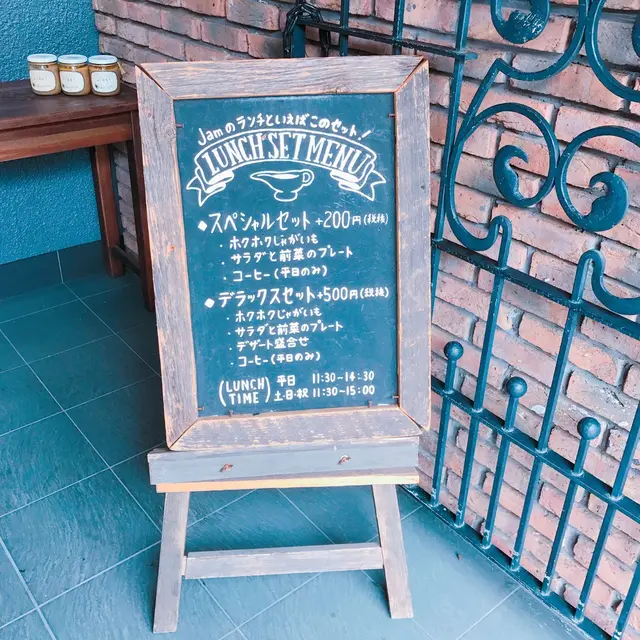 Jamのランチといえばこのセット!
LUNCH SET MENU
◆スペシャルセット+200円(税抜)
・ホクホクじゃがいも
・サラダと前菜のプレート
・コーヒー(平日のみ)
◆デラックスセット+500円(税抜)
・ホクホクじゃがいも
・サラダと前菜のプレート
・デザート盛合せ
・コーヒー(平日のみ)
(LUNCH TIME) 平日 11:30-14:30
土日・祝 11:30-15:00